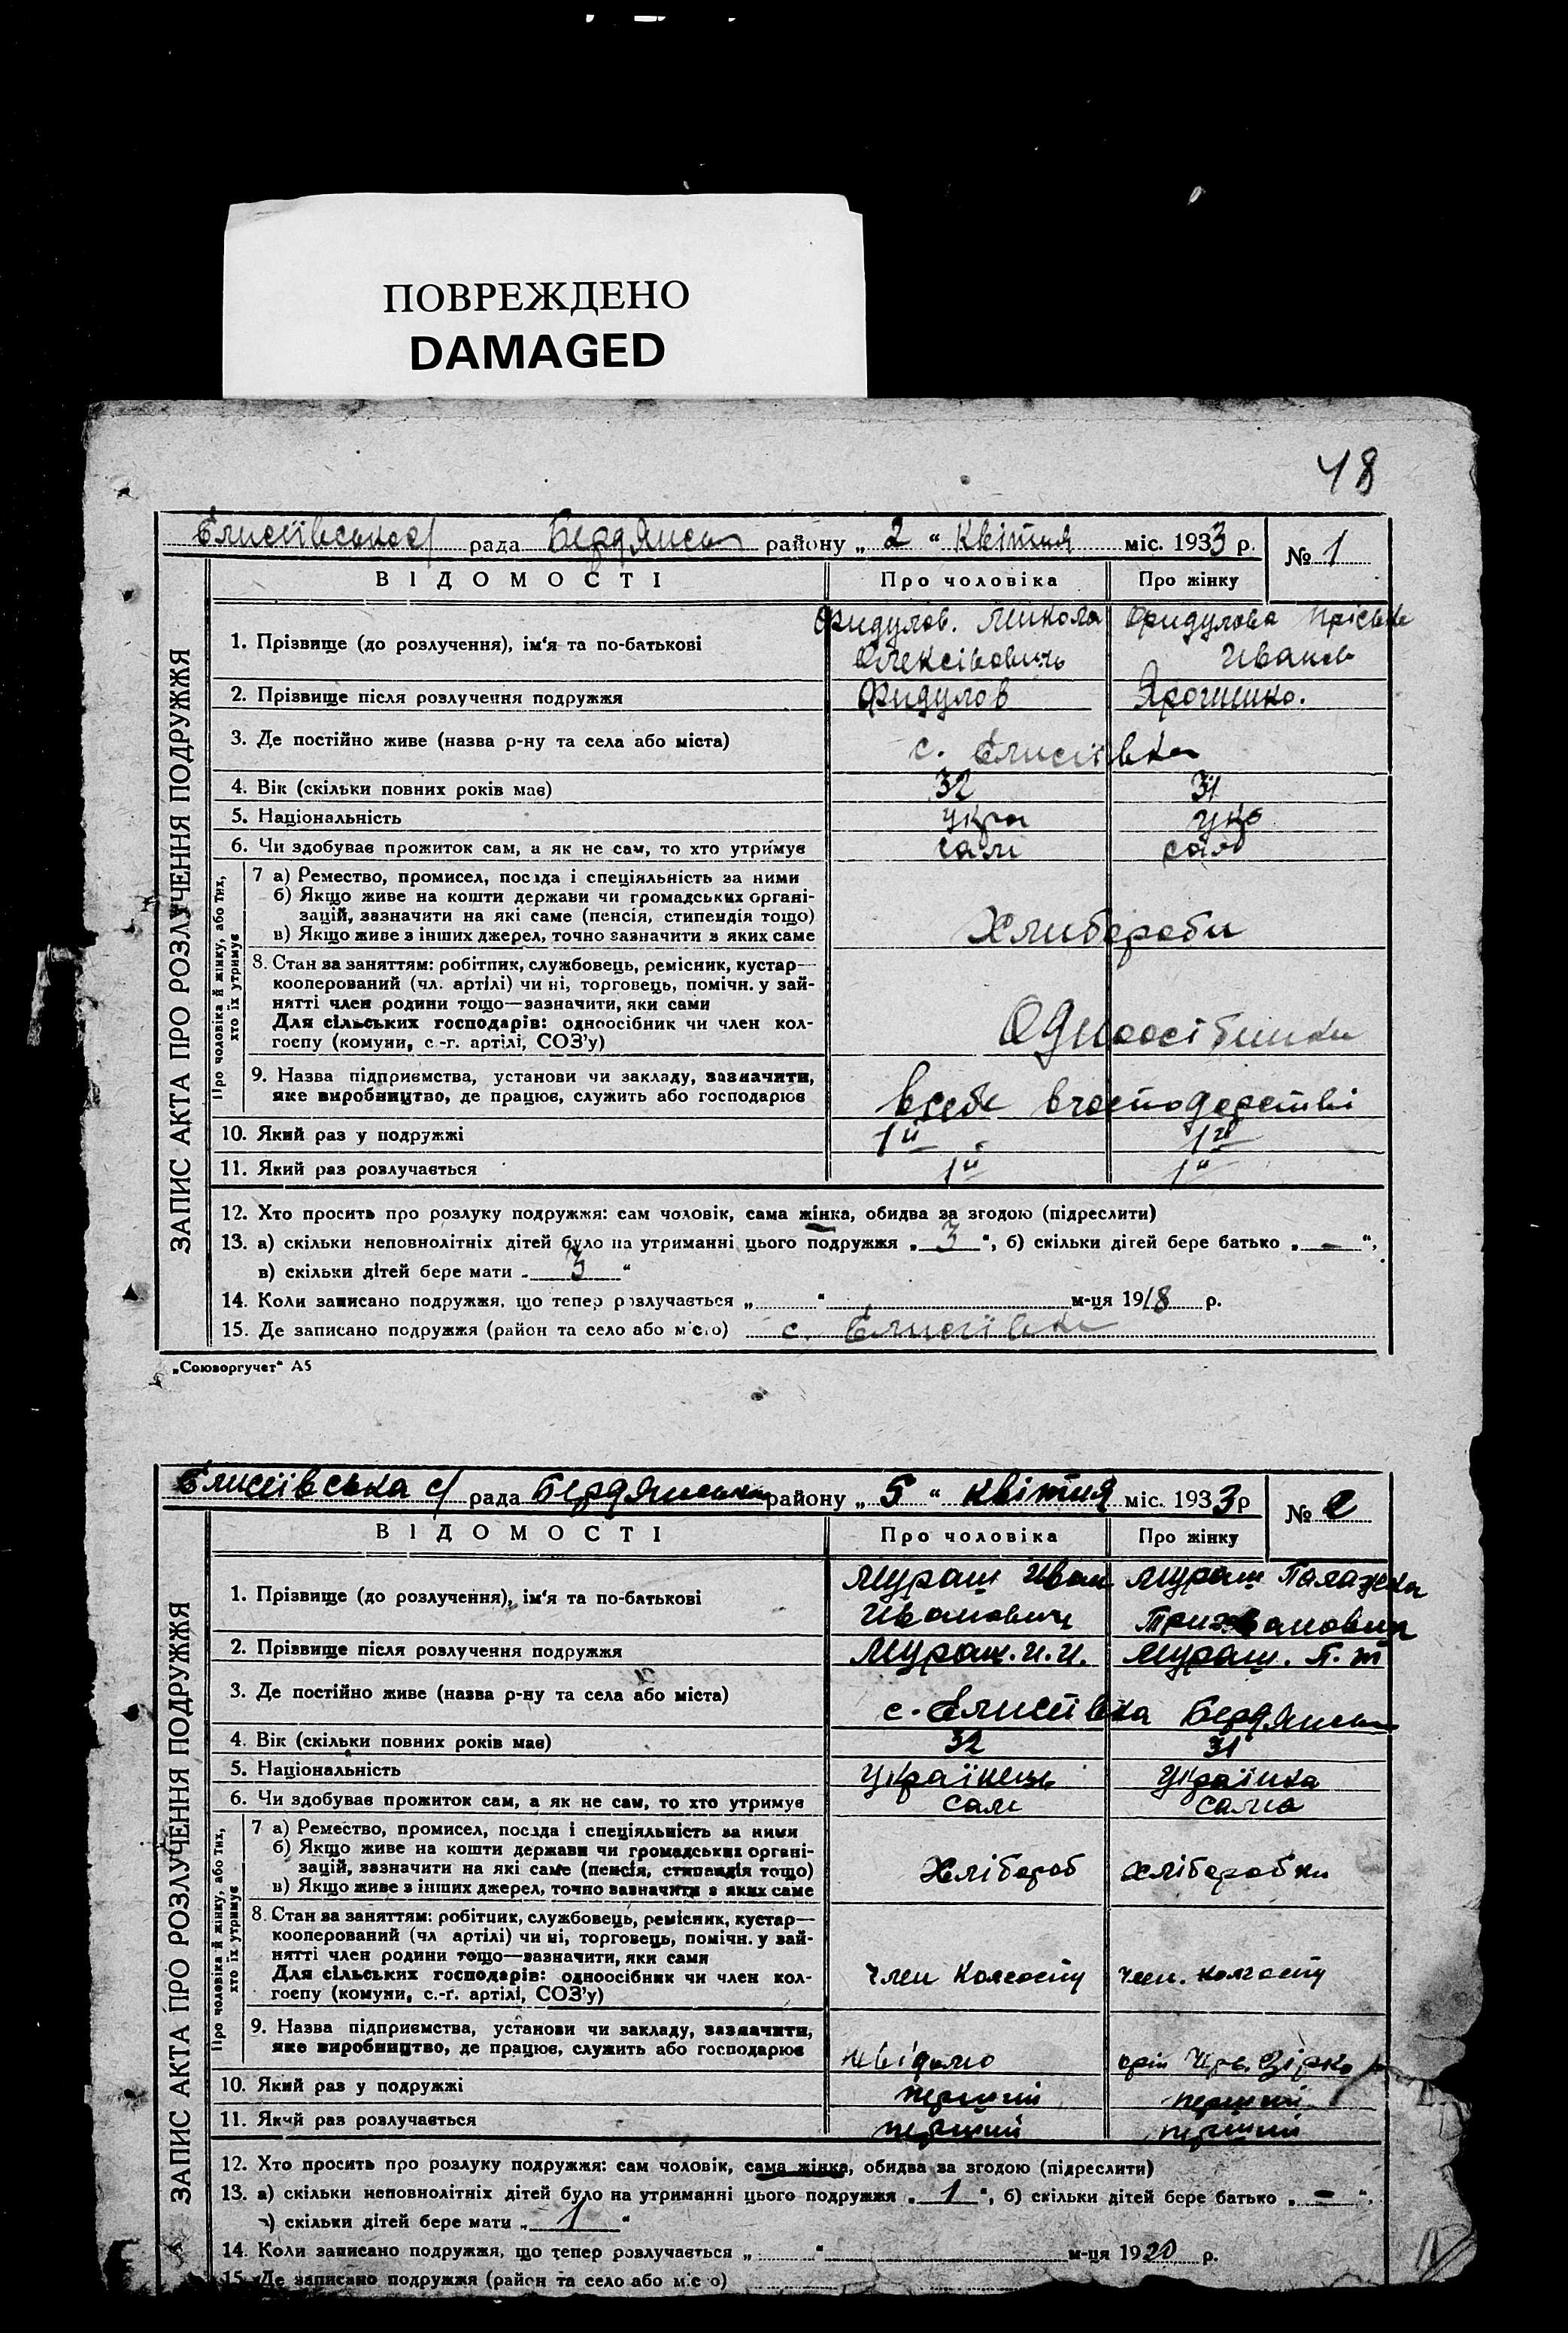 ПОВРЕЖДЕНО
DAMAGED
48
Єлисіївська с/ рада Бердянськ району „ 2 “ Квітня міс. 1933 р. № 1
ВІДОМОСТІ Про чоловіка Про жінку
ЗАПИС АКТА ПРО РОЗЛУЧЕННЯ ПОДРУЖЖЯ
1. Прізвище (до розлучення), ім‘я та по-батькові
Фидулов. Микола Фидулова
Олексійовичь Иванов
2. Прізвище після розлучення подружжя Фидулов
3. Де постійно живе (назва р-ну та села або міста) с. Єлисіївка
4. Вік (скільки повних років має) 32 31
5. Національність укра укр
6. Чи здобуває прожиток сам, а як не сам, то хто утримує сам сам
Про чоловіка й жінку, або тих, хто їх утримує
7 а) Ремество, промисел, посада і спеціяльність за ними
б) Якщо живе на кошти держави чи громадських органі-
зацій, зазначити на які саме (пенсія, стипендія тощо)
в) Якщо живе з інших джерел, точно зазначити з яких саме Хлибороби
8. Стан за заняттям: робітник, службовець, ремісник, кустар—
кооперований (чл. артілі) чи ні, торговець, помічн. у зай-
нятті член родини тощо—зазначити, яки сами
Для сільських господарів: одноосібник чи член кол-
госпу (комуни, с.-г. артілі, СОЗ’у) Одноосібники
9. Назва підприємства, установи чи закладу, зазначити,
яке виробництво, де працює, служить або господарює в себе в господарстві
10. Який раз у подружжі 1й 1й
11. Який раз розлучається 1й 1й
12. Хто просить про розлуку подружжя: сам чоловік, сама жінка, обидва за згодою (підреслити)
13. а) скільки неповнолітніх дітей було на утриманні цього подружжя „ 3 “, б) скільки дітей бере батько „ – “,
в) скільки дітей бере мати „ 3 “
14. Коли записано подружжя, що тепер розлучається „ “ м-ця 1918 р.
15. Де записано подружжя (район та село або місто) с. Єлисіївка
„Союзоргучет“ А5
Єлисіївська с/ рада Бердянськ району „ 5 “ квітня міс. 1933 р № 2
ВІДОМОСТІ Про чоловіка Про жінку
ЗАПИС АКТА ПРО РОЗЛУЧЕННЯ ПОДРУЖЖЯ
1. Прізвище (до розлучення), ім‘я та по-батькові
Мураш Иван Мураш Палажка
Иванович
2. Прізвище після розлучення подружжя Мураш. И. И. Мураш. П. Т
3. Де постійно живе (назва р-ну та села або міста) с. Єлисіївка Бердянськ
4. Вік (скільки повних років має) 32 31
5. Національність Українець Українка
6. Чи здобуває прожиток сам, а як не сам, то хто утримує сам сама
Про чоловіка й жінку, або тих, хто їх утримує
7 а) Ремество, промисел, посада і спеціяльність за ними
б) Якщо живе на кошти держави чи громадських органі-
зацій, зазначити на які саме (пенсія, стипендія тощо)
в) Якщо живе з інших джерел, точно зазначити з яких саме Хлібороб хліборобка
8. Стан за заняттям: робітник, службовець, ремісник, кустар—
кооперований (чл артілі) чи ні, торговець, помічн. у зай-
нятті член родини тощо—зазначити, яки сами
Для сільських господарів: одноосібник чи член кол-
госпу (комуни, с.-г. артілі, СОЗ’у) Член Колгоспу член. колгоспу
9. Назва підприємства, установи чи закладу, зазначити,
яке виробництво, де працює, служить або господарює невідомо Черв. Зірка
10. Який раз у подружжі перший перший
11. Який раз розлучається перший перший
12. Хто просить про розлуку подружжя: сам чоловік, сама жінка, обидва за згодою (підреслити)
13. а) скільки неповнолітніх дітей було на утриманні цього подружжя „ 1 “, б) скільки дітей бере батько „ – “,
в) скільки дітей бере мати „ 1 “
14. Коли записано подружжя, що тепер розлучається „ “ м-ця 1920 р.
15. Де записано подружжя (район та село або міс о)